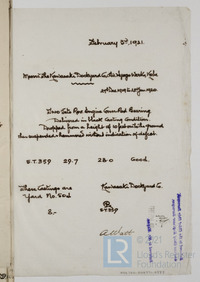 February 5th, 1921.
Messrs The Kawasaki Dockyard Co. the Hyogo Works, Kobe
27th Dec 1919 & 12th Jan 1920
Two Sets Rod Engine Guns Rod Bearing
Delivered in Black Casting Condition
Dropped from a height of 10 feet onto the ground
then suspended & hammered without indication of defect.
S.T. 359 29.7 28.0 Good.
These Castings are Kawasaki Dockyard Co.
Yard No.
S.T 359
A. Watt
LR
© 2021
Lloyd's Register
Foundation